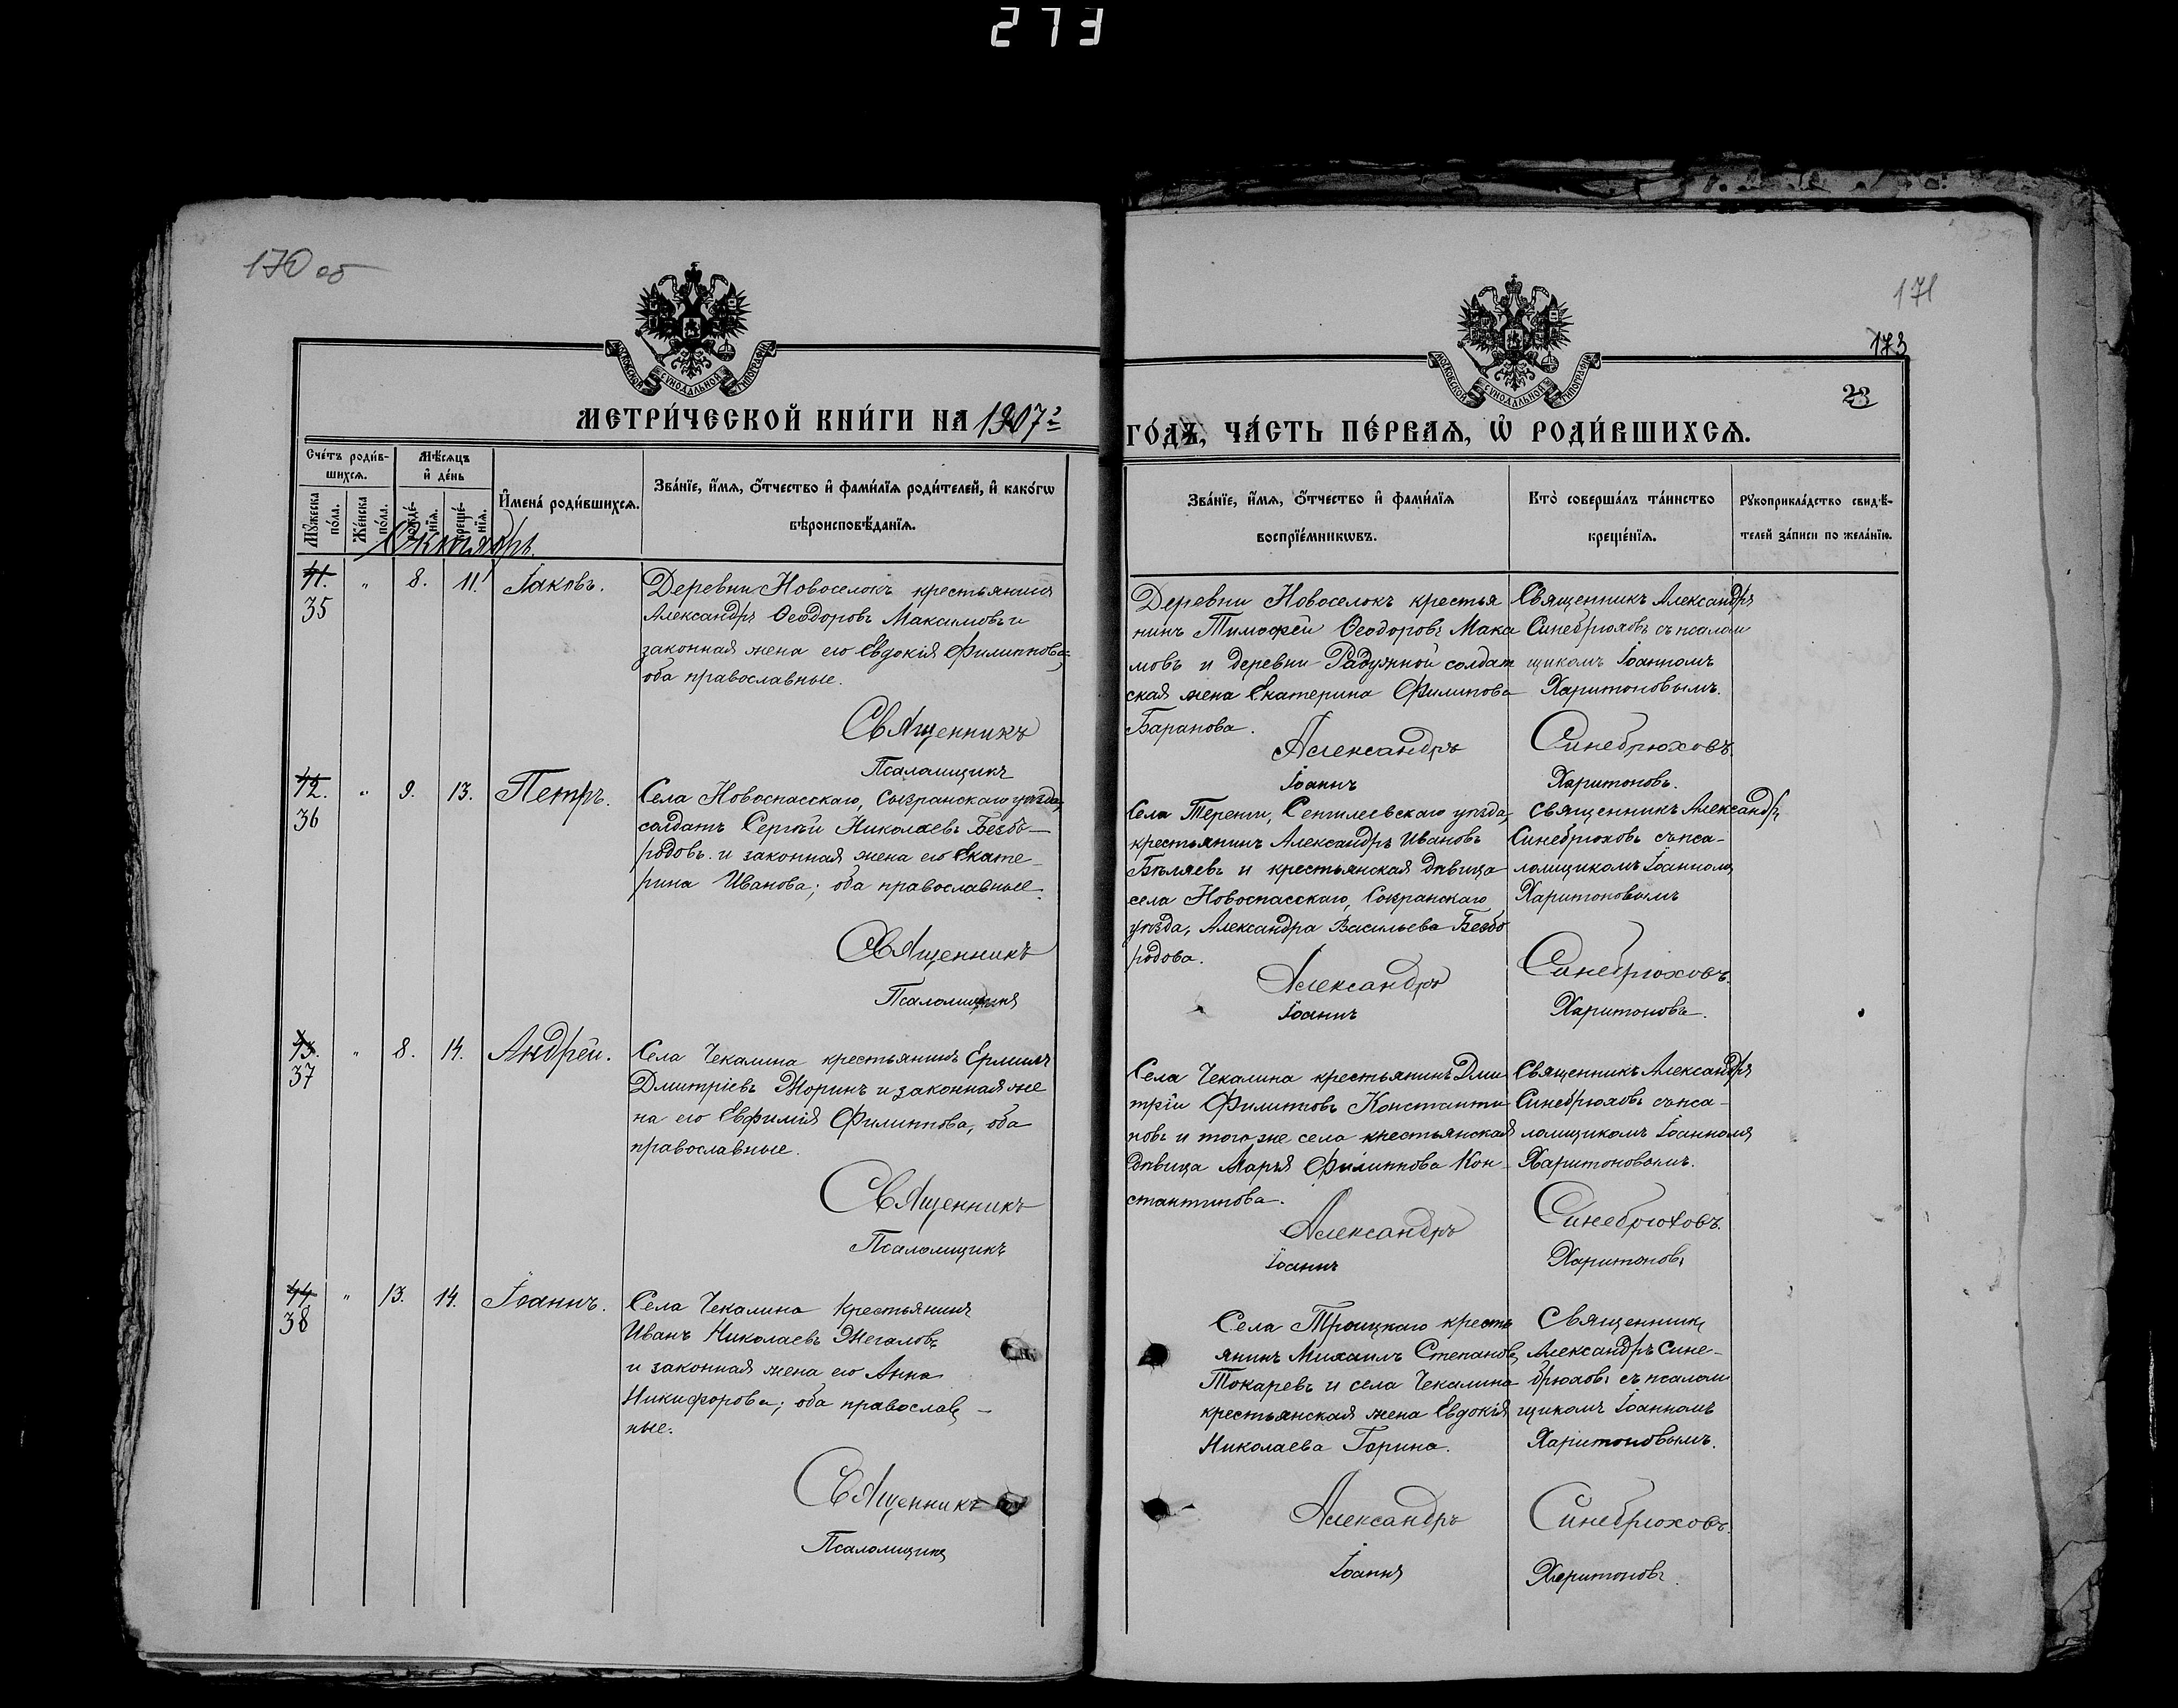 273
170 об
МОСКОВСКОЙ СѴНОДАЛЬНОЙ ТИПОГРАФІИ
МЕТРИ́ЧЕСКОЙ КНИ́ГИ НА 1907 г
Сче́тъ роди́в-
шихсѧ.
Мѣ́сѧцъ
и҆ де́нь
Мꙋ́жеска
по́ла.
Же́нска
по́ла.
рожде́-
нїѧ.
креще́-
нїѧ.
И҆мена̀ роди́вшихсѧ.
Зва́нїе, и҆́мѧ, ѻ҆́тчество и҆ фами́лїѧ роди́телей, и҆ како́гѡ
вѣроисповѣ́данїѧ.
Октябрь.
41.
35
" 8. 11. Іаковъ.
Деревни Новоселокъ крестьянинъ
Александръ Ѳеодоровъ Максимовъ и
законная жена его Евдокія Филиппова,
оба православные.
Священникъ
Псаломщикъ
42.
36
" 9. 13. Петръ.
Села Новоспасскаго, Сызранскаго уѣзда,
солдатъ Сергѣй Николаевъ Безбо-
родовъ и законная жена его Екате-
рина Иванова; оба православные.
Священникъ
Псаломщикъ
43.
37
" 8. 14. Андрей.
Села Чекалина крестьянинъ Ермилъ
Дмитріевъ Жоринъ и законная же
на его Евфимія Филиппова, оба
православные.
Священникъ
Псаломщикъ
44
38
" 13. 14. Іоаннъ.
Села Чекалина крестьянинъ
Иванъ Николаевъ Жегаловъ
и законная жена его Анна
Никифорова; оба православ-
ные.
Священникъ
Псаломщикъ
171
173
23
МОСКОВСКОЙ СѴНОДАЛЬНОЙ ТИПОГРАФІИ
ГО́ДЪ, ЧА́СТЬ ПЕ́РВАѦ, Ѡ҆ РОДИ́ВШИХСѦ.
Зва́нїе, и҆́мѧ, ѻ҆́тчество и҆ фами́лїѧ
воспрїе́мникѡвъ.
Кто̀ соверша́лъ та́инство
креще́нїѧ.
Рꙋкоприкла́дство свидѣ́-
телей за́писи по жела́нїю.
Деревни Новоселокъ крестья
нинъ Тимофей Ѳеодоровъ Макси
мовъ и деревни Радужной солдат
ская жена Екатерина Филипова
Баранова.
Священникъ Александръ
Синебрюховъ съ псалом
щикомъ Іоанномъ
Харитоновымъ.
Александръ Синебрюховъ.
Іоаннъ Харитоновъ.
Села Тереньги, Сенгилеевскаго уѣзда,
крестьянинъ Александръ Ивановъ
Бѣляевъ и крестьянская дѣвица
села Новоспасскаго, Сызранскаго
уѣзда, Александра Васильева Безбо
родова.
Священникъ Александръ
Синебрюховъ съ пса-
ломщикомъ Іоанномъ
Харитоновымъ
Александръ Синебрюховъ.
Іоаннъ Харитоновъ.
Села Чекалина крестьянинъ Дми
трій Филиповъ Константи
новъ и того же села крестьянская
дѣвица Марья Филиппова Кон
стантинова.
Священникъ Александръ
Синебрюховъ съ пса-
ломщикомъ Іоанномъ
Харитоновымъ.
Александръ Синебрюховъ.
Іоаннъ Харитоновъ
Села Троицкаго кресть
янинъ Михаилъ Степановъ
Токаревъ и села Чекалина
крестьянская жена Евдокія
Николаева Горина.
Священникъ
Александръ Сине-
брюховъ съ псалом
щикомъ Іоанномъ
Харитоновымъ.
Александръ Синебрюховъ.
Іоаннъ Харитоновъ.